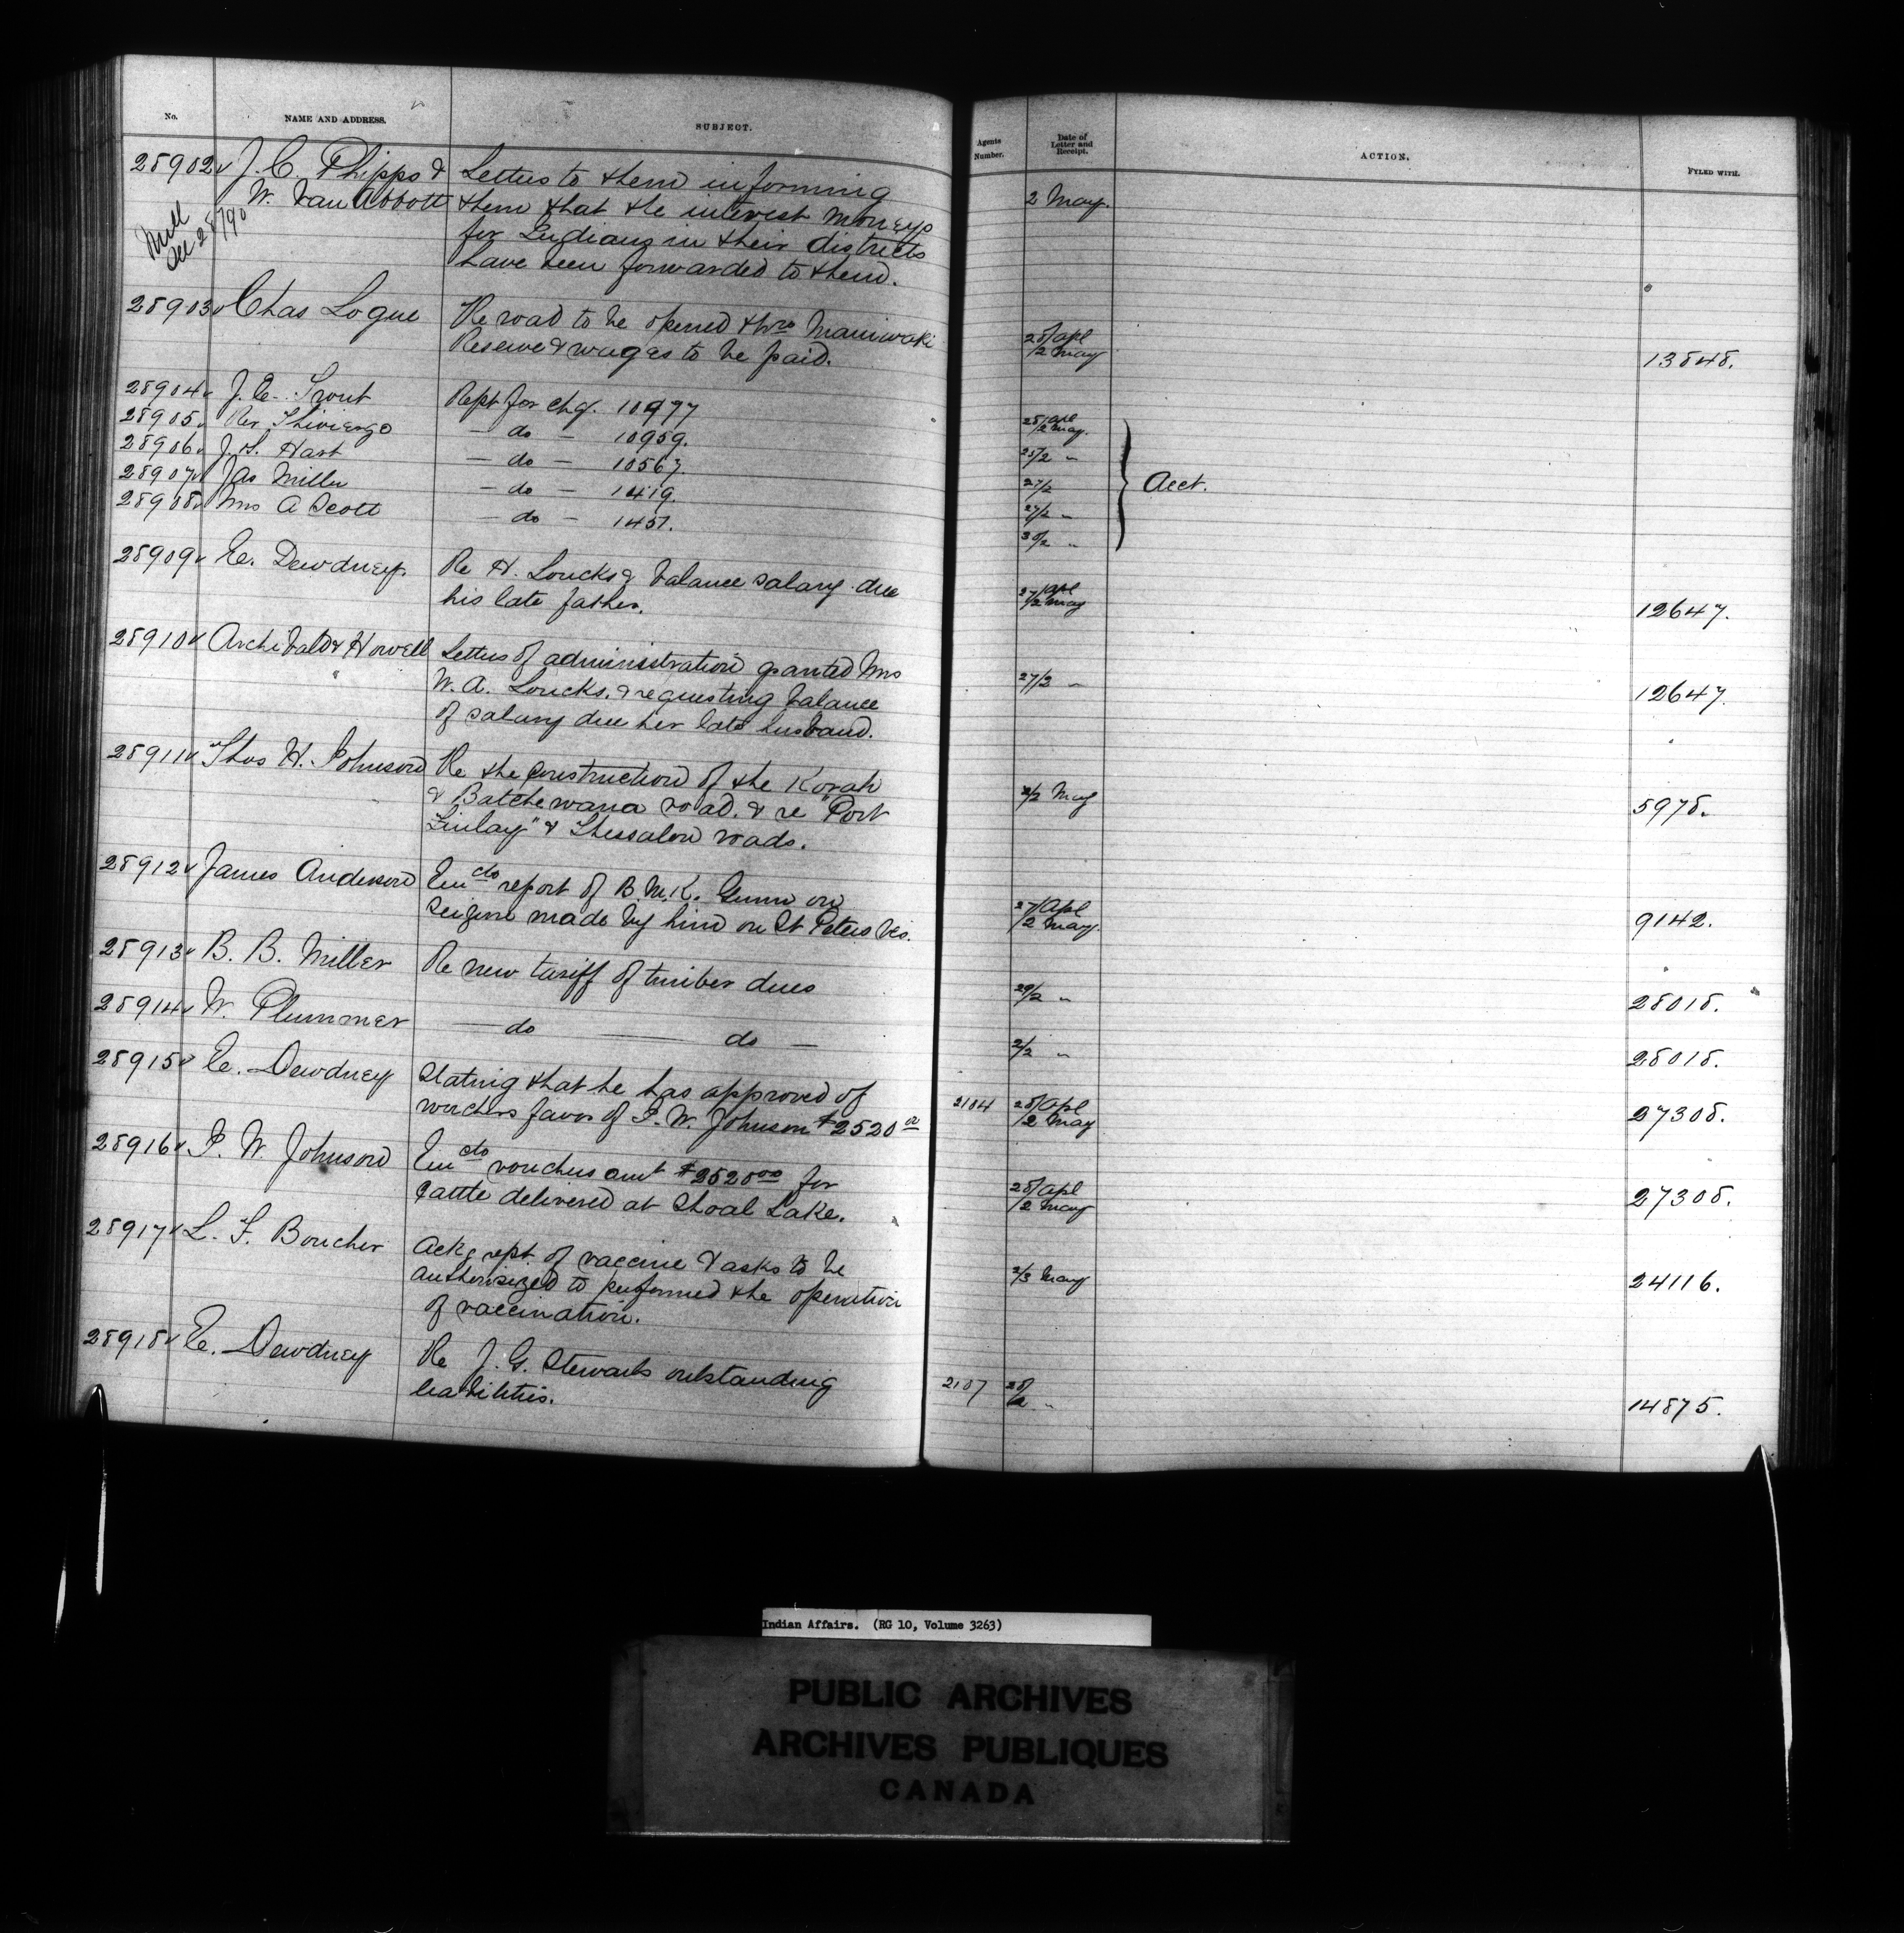 No. NAME AND ADDRESS. SUBJECT. Agents Number. Date of Letter and Receipt. ACTION. FYLED WITH.
28902 J. C. Phipps & Letters to them informing 2 May.
W. Van Abbott them that the interest moneys
Dec 28/90 for Indians in their districts
have been forwarded to them.
28903 Chas Logue Re road to be opened thro Maniwaki 28/apl
Reserve & wages to be paid. /2 May 13848.
28904 J. E. Trout Rept for chq. 10977 28/apl /2 May.
28905 Rev. — do — 10959. 25/2 "
28906 J. S. Hart — do — 10567. 27/2 Acct.
28907 Jas Miller — do — 1419. 27/2 "
28908 Mrs A Scott — do — 1451. 30/2 "
28909 E. Dewdney. Re H. Loucks & balance salary due 27/apl
his late father. /2 May 12647.
28910 Archibald & Howell Letters of administration granted Mrs
W. A. Loucks. & requesting balance 27/2 " 12647.
of salary due her late husband.
28911 Thos H. Johnson Re the construction of the Korah
& Batchewana road. & re "Port 2/2 May 5978.
Finlay" & Thessalon roads.
28912 James Anderson Encdo report of B. McK. Gunn on 27/Apl
seizure made by him on St Peters Res. /2 May. 9142.
28913 B. B. Miller Re new tariff of timber dues 29/2 " 28018.
28914 W. Plummer — do — do — 2/2 " 28018.
28915 E. Dewdney Stating that he has approved of 2184 28/Apl
vouchers favor of P. W. Johnson $2520 00 /2 May 27308.
28916 P. W. Johnson Encdo vouchers amt $2520 00 for 28/apl
cattle delivered at Shoal Lake. /2 May 27308.
28917 L. F. Boucher Ackg rept. of vaccine & asks to be
authorisized to performed the operation 2/3 May 24116.
of vaccination.
28918 E. Dewdney Re J. G. Stewarts outstanding
liabilities. 2187 28/2 " 14875.
Indian Affairs. (RG 10, Volume 3263)
PUBLIC ARCHIVES
ARCHIVES PUBLIQUES
CANADA